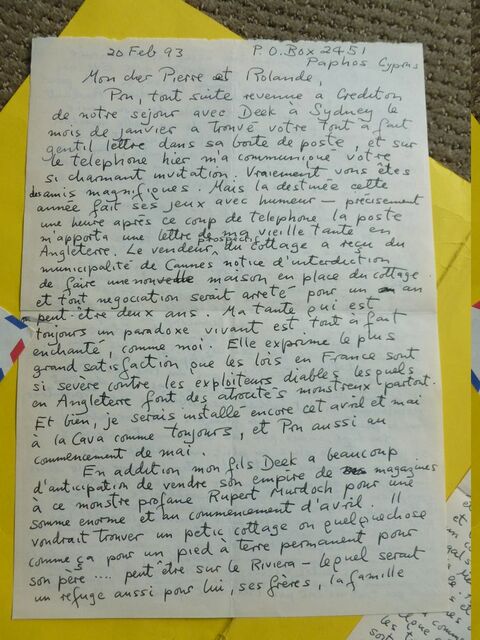 20 Feb 93 P.O. Box 2451
Paphos Cyprus
Mon cher Pierre et Rolande,
Pon, tout suite revenue a Crediton
de notre sejour avec Deek à Sydney le
mois de janvier a trouvé votre tout à fait
gentil lettre dans sa boite de poste, et sur
le telephone hier m'a communiqué votre
si charmant invitation. Vraiement vous êtes
des amis magnifiques. Mais la destinée cette
année fait ses jeux avec humeur — précisement
une heure après ce coup de telephone la poste
m'apporta une lettre de ma vieille tante en
Angleterre. Le vendeur du cottage a reçu du
municipalité de Cannes notice d'interdiction
de faire une nouvelle maison en place du cottage
et tout negociation serait arreté pour un an
peut-être deux ans. Ma tante qui est
toujours un paradoxe vivant est tout à fait
enchanté, comme moi. Elle exprime le plus
grand satisfaction que les lois en France sont
si severe contre les exploiteurs diables lesquels
en Angleterre font des atrocités monstreux partout.
Et bien, je serais installé encore cet avril et mai
à la Cava comme toujours, et Pon aussi au
commencement de mai.
En addition mon fils Deek a beaucoup
d'anticipation de vendre son empire de magazines
à ce monstre profane Rupert Murdoch pour une
somme enorme et au commencement d'avril. Il
voudrait trouver un petit cottage ou quelquechose
comme ça pour un pied à terre permanent pour
son père .... peut être sur le Riviera — lequel serait
un refuge aussi pour lui, ses frères, la famille